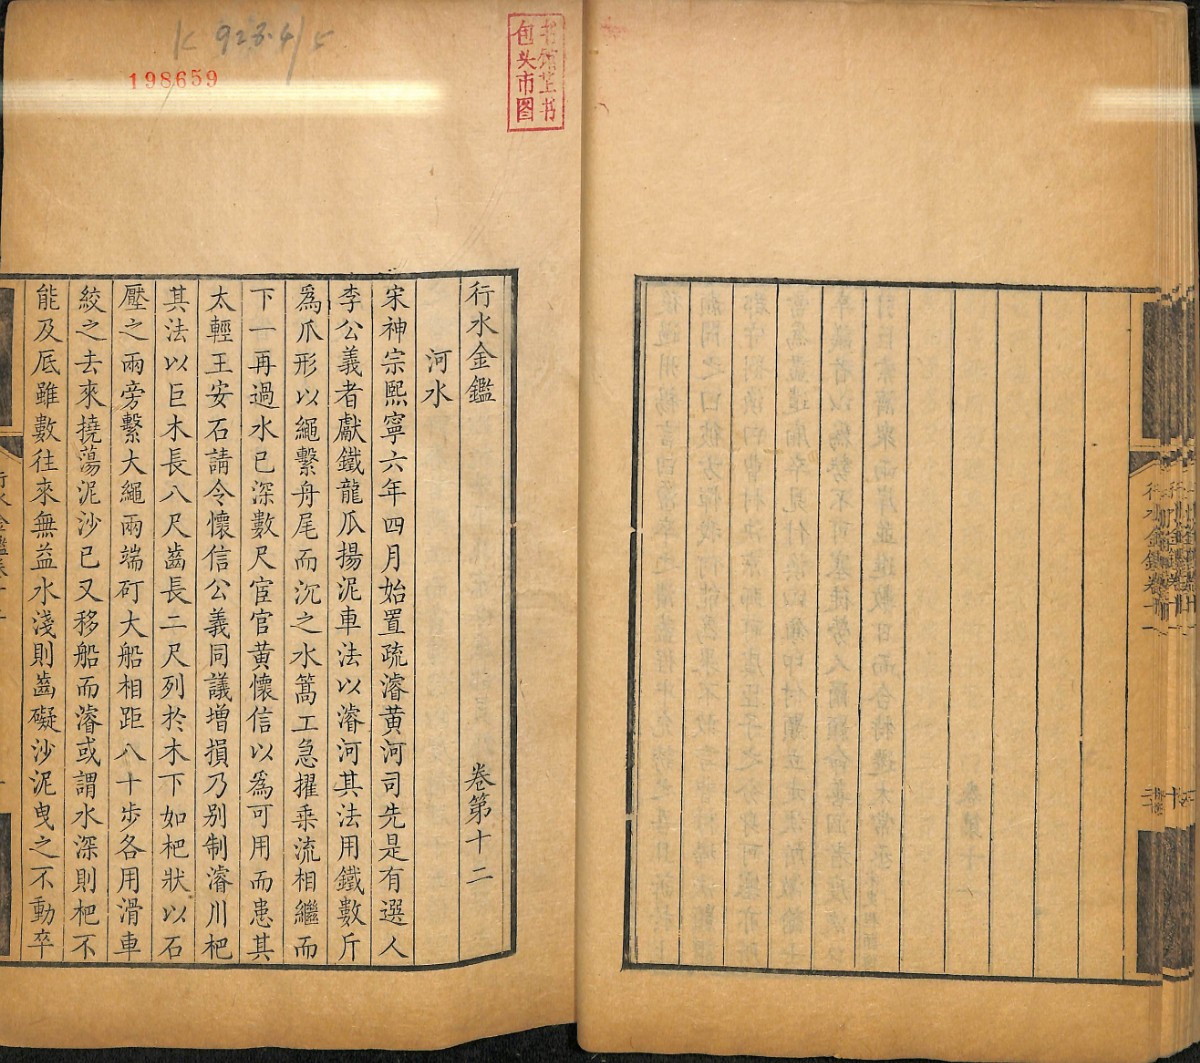 K 923.4/5
198659
包头市图
书馆芷书
行水金鑑 卷第十二
河水
宋神宗熙寧六年四月始置疏濬黃河司先是有選人
李公義者獻鐵龍爪揚泥車法以濬河其法用鐵數斤
爲爪形以繩繫舟尾而沉之水篙工急擢乘流相繼而
下一再過水已深數尺宦官黃懷信以爲可用而患其
太輕王安石請令懷信公義同議增損乃别制濬川杷
其法以巨木長八尺齒長二尺列於木下如杷狀以石
壓之兩旁繫大繩兩端矴大船相距八十步各用滑車
絞之去來撓蕩泥沙已又移船而濬或謂水深則杷不
能及底雖數往來無益水淺則齒礙沙泥曳之不動卒